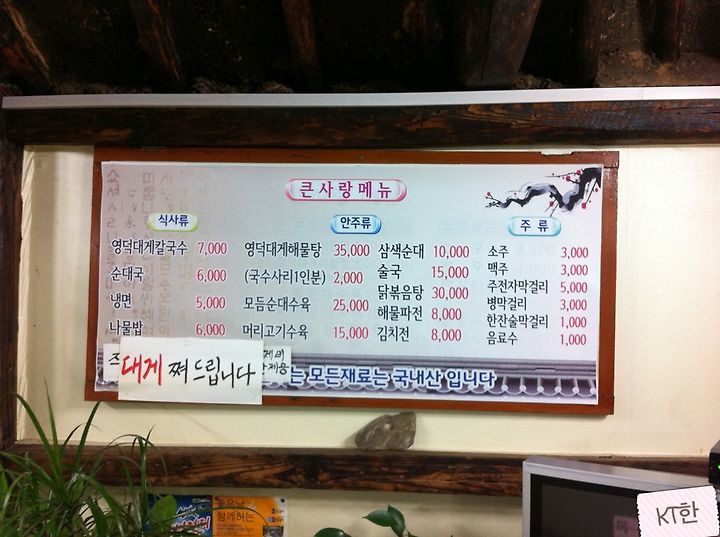 큰사랑메뉴
식사류
영덕대게칼국수 7,000
순대국 6,000
냉면 5,000
나물밥 6,000
안주류
영덕대게해물탕 35,000
(국수사리1인분) 2,000
모듬순대수육 25,000
머리고기수육 15,000
삼색순대 10,000
술국 15,000
닭볶음탕 30,000
해물파전 8,000
김치전 8,000
주 류
소주 3,000
맥주 3,000
주전자막걸리 5,000
병막걸리 3,000
한잔술막걸리 1,000
음료수 1,000
대게 쪄 드립니다
는 모든재료는 국내산 입니다
함께하는
KT한